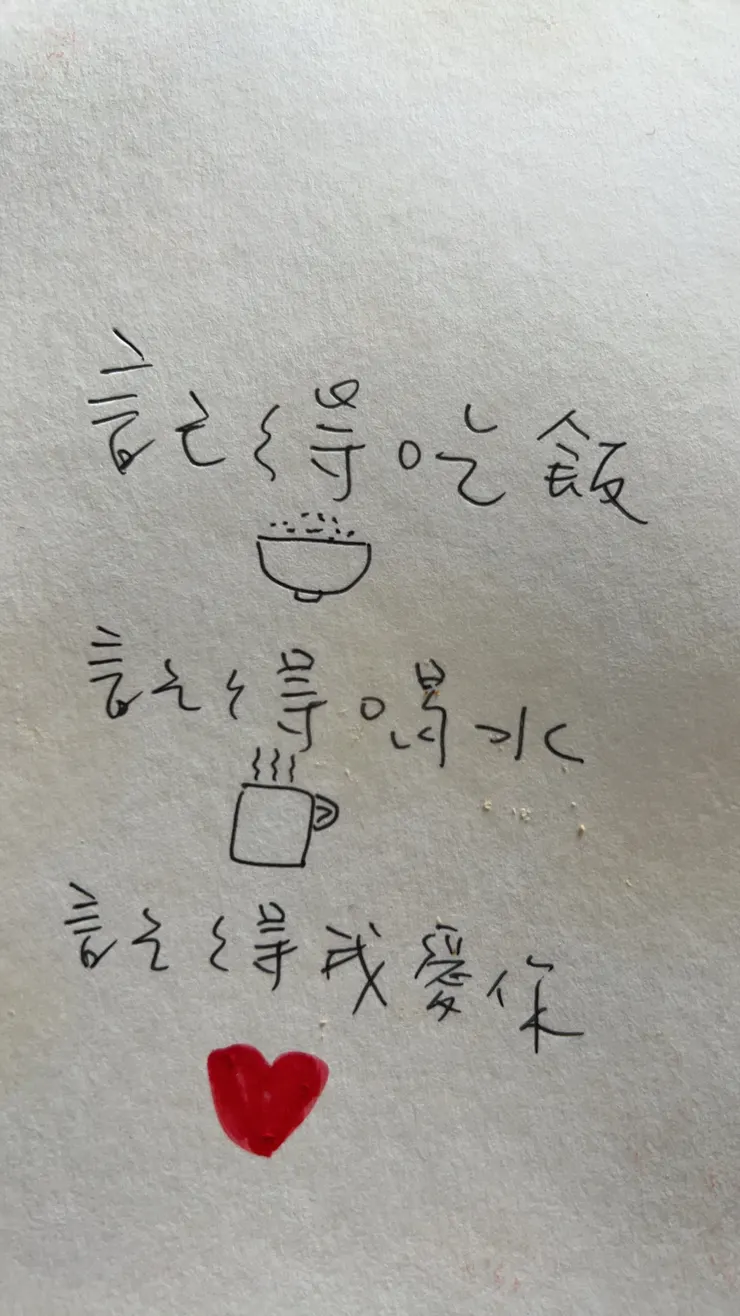 記得吃飯
記得喝水
記得我愛你